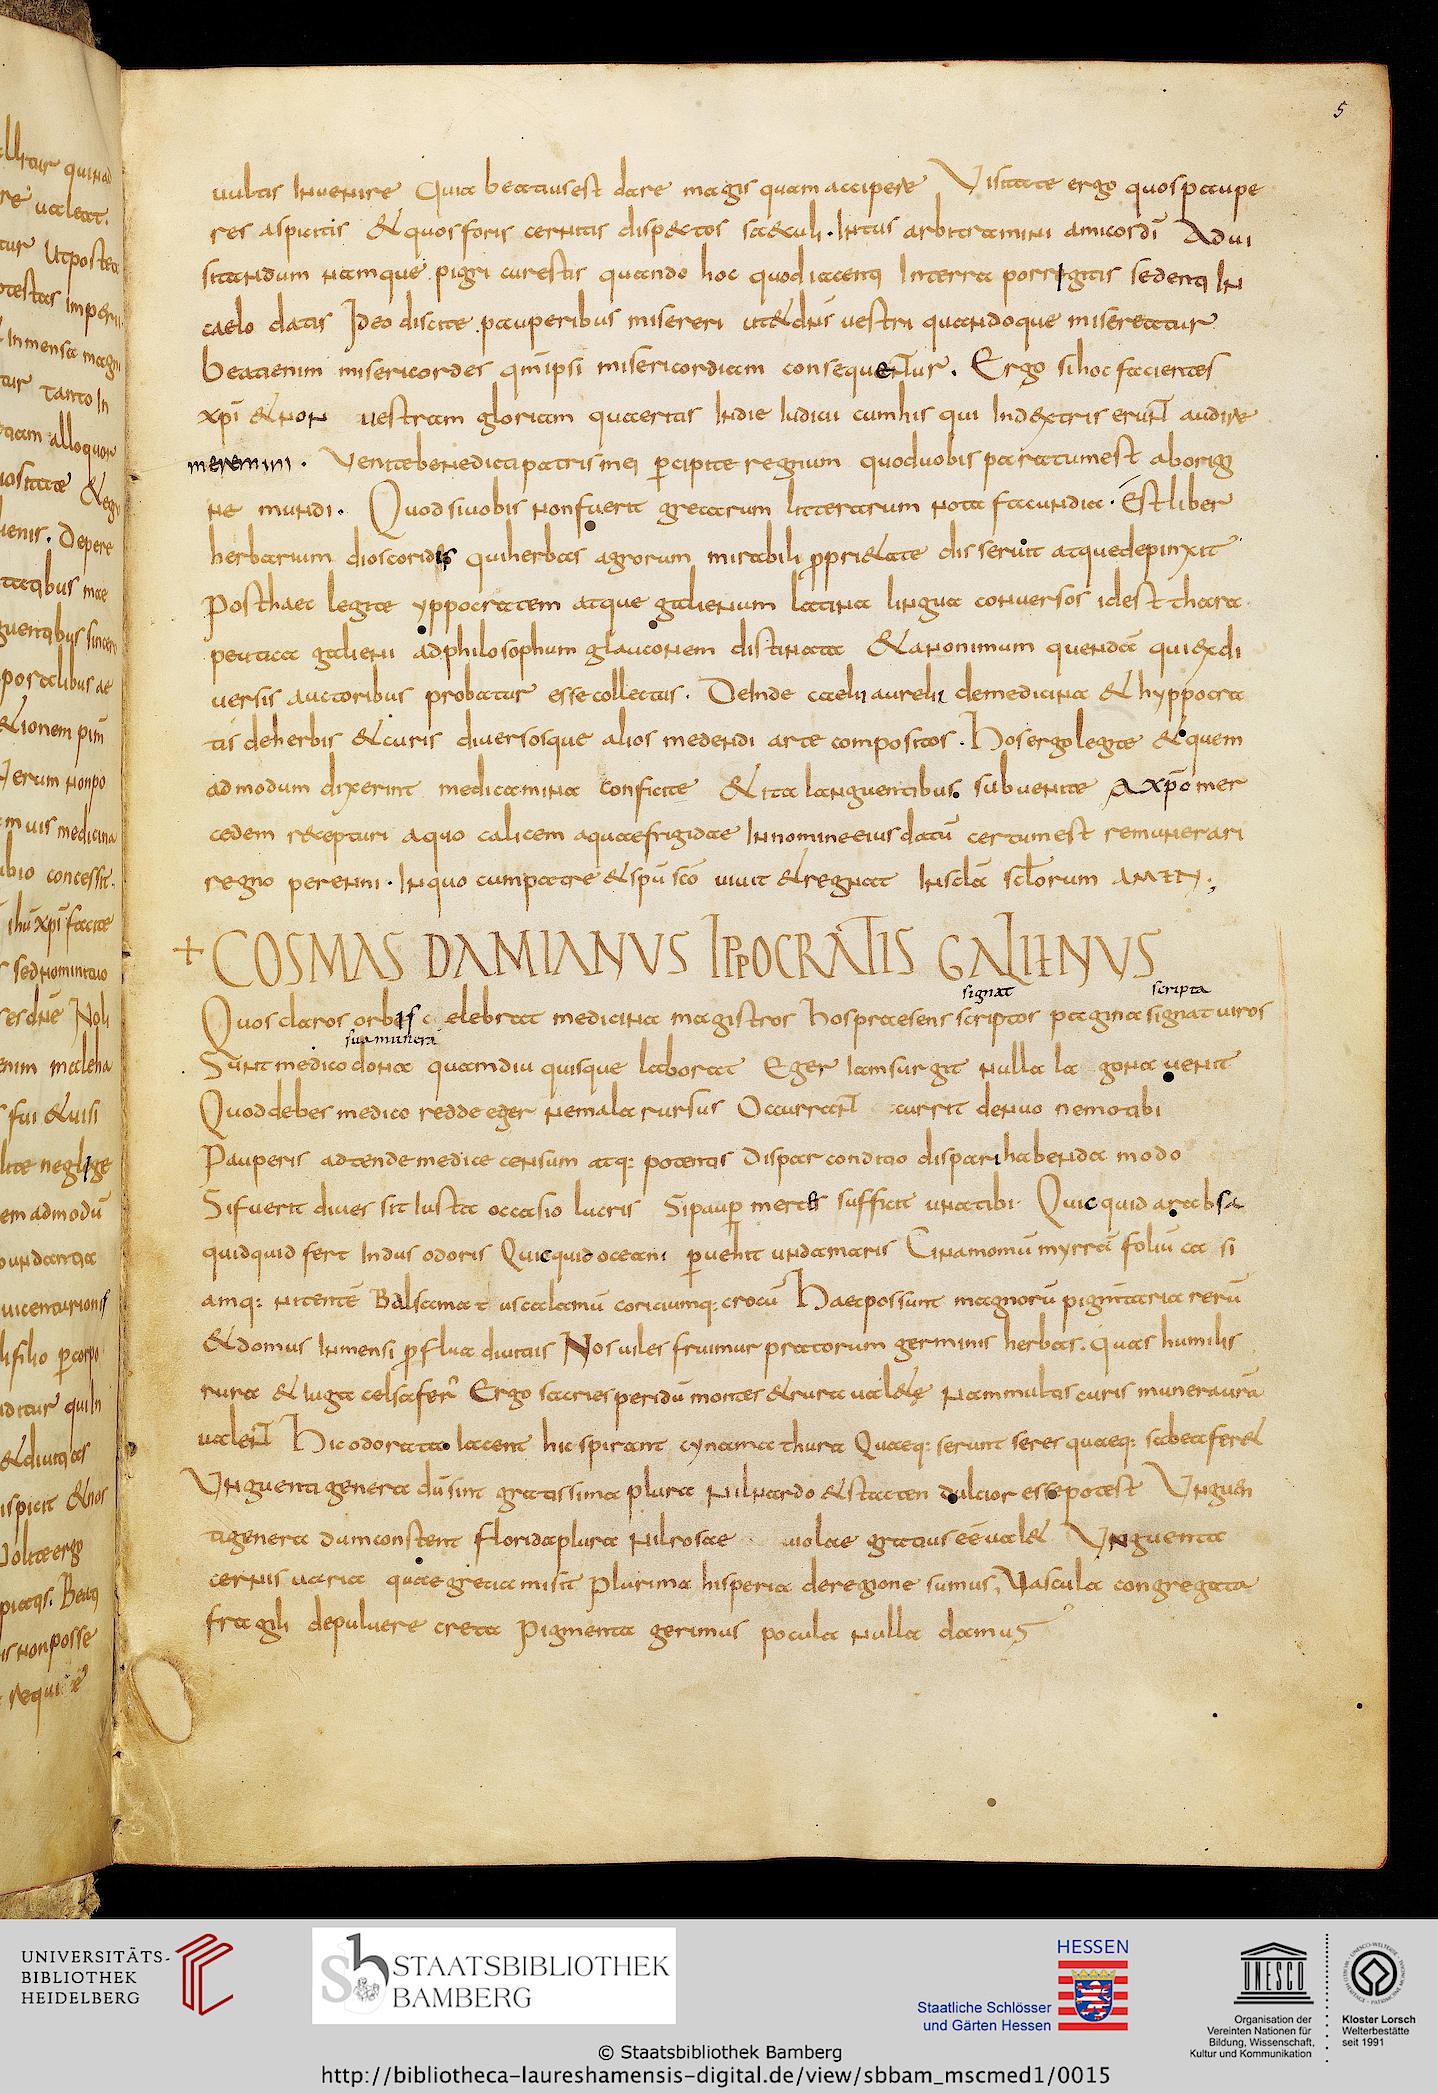 5
uultis inuenire Quia beatius est dare magis quam accipere Visitate ergo quos paupe
res aspicitis & quos foris cernitis disp&tos saeculi · Intus arbitramini amicos dī Ad ui
sitandum namque pigri cur estis quando hoc quod iacentes In terra porrigitis sedentes In
caelo datis Ideo discite pauperibus misereri ut & dn̄s uestri quandoque misereatur
beati enim misericordes qm̄ ipsi misericordiam consequentur . Ergo si hoc facientes
xpī & non uestram gloriam quaeritis In die Iudicii cum his qui In dextris erunt audire
meremini . Venite benedicti patris mei percipite regnum quod uobis paratum est ab origi
ne mundi . Quod si uobis non fuerit grecarum litterarum nota facundia · Est liber
herbarium dioscoridis qui herbas agrorum mirabili propri&ate disseruit atque depinxit
Post haec legite yppocratem atque galienum latina lingua conuersos id est thera
peutica galieni ad philosophum glauconem distinata & anonimum quendā qui ex di
uersis auctoribus probatur esse collectus . Deinde caelii aurelii de medicina & hyppocra
tis de herbis & curis diuersosque alios medendi arte compositos . Hos ergo legite & quem
admodum dixerint medicamina conficite & ita languentibus subuenite A xpō mer
cedem recepturi a quo calicem aquae frigidae In nomine eius datū certum est remunerari
regno perenni · In quo cum patre & spū scō uiuit & regnat In scła scłorum AMEN ;
+ COSMAS DAMIANUS IPPOCRATIS GALIENUS
signat scripta
Quos claros orbis celebrat medicina magistros hos praesens scriptor pagina signat uiros
sua munera
Sunt medico dona quamdiu quisque laborat Eger Iam surgit nulla la gona uenit
Quod debes medico redde eger ne mala rursus Occurrant currit denuo nemo tibi
Pauperis adtende medice censum atq: potentis Dispar conditio dispar habenda modo
Si fuerit diues sit Iusta occasio lucris Si pauper merces sufficit una tibi · Quicquid arabs a
quidquid fert Indus odoris Quicquid oceani peruehit unda maris Cinamomū myrrā foliū ca si
amq: nitentē Balsama t us calamū coriciumq: crocū Haec possunt magnorū pigmtaria rerū
& domus Inmensi proflua diuitiis Nos uiles fruimur pratorum germinis herbas . quas humilis
rura & Iuga celsa fer Ergo sacri esperidū montes & rura ual&e Nam multis curis munera urā
ualent Hic odorata Iacent hic spirant cynama thura Quaeq: serunt seres quaeq: sabea fer&
Vnguenti genera dū sint gratissima plura Nil nardo & stacten dulcior esse potest Vnguen
ti genera dum constent florida plura Nil rosae uiolae gratius eē ual& Vnguenta
cernis uaria quae grecia misit Plurima hisperia de regione sumus , Vascula congregata
fragili de puluere creta Pigmenta gerimus pocula nulla damus
UNIVERSITÄTS-
BIBLIOTHEK
HEIDELBERG
STAATSBIBLIOTHEK
BAMBERG
HESSEN
Staatliche Schlösser
und Gärten Hessen
UNESCO
Organisation der
Vereinten Nationen für
Bildung, Wissenschaft,
Kultur und Kommunikation
Kloster Lorsch
Welterbestätte
seit 1991
© Staatsbibliothek Bamberg
http://bibliotheca-laureshamensis-digital.de/view/sbbam_mscmed1/0015